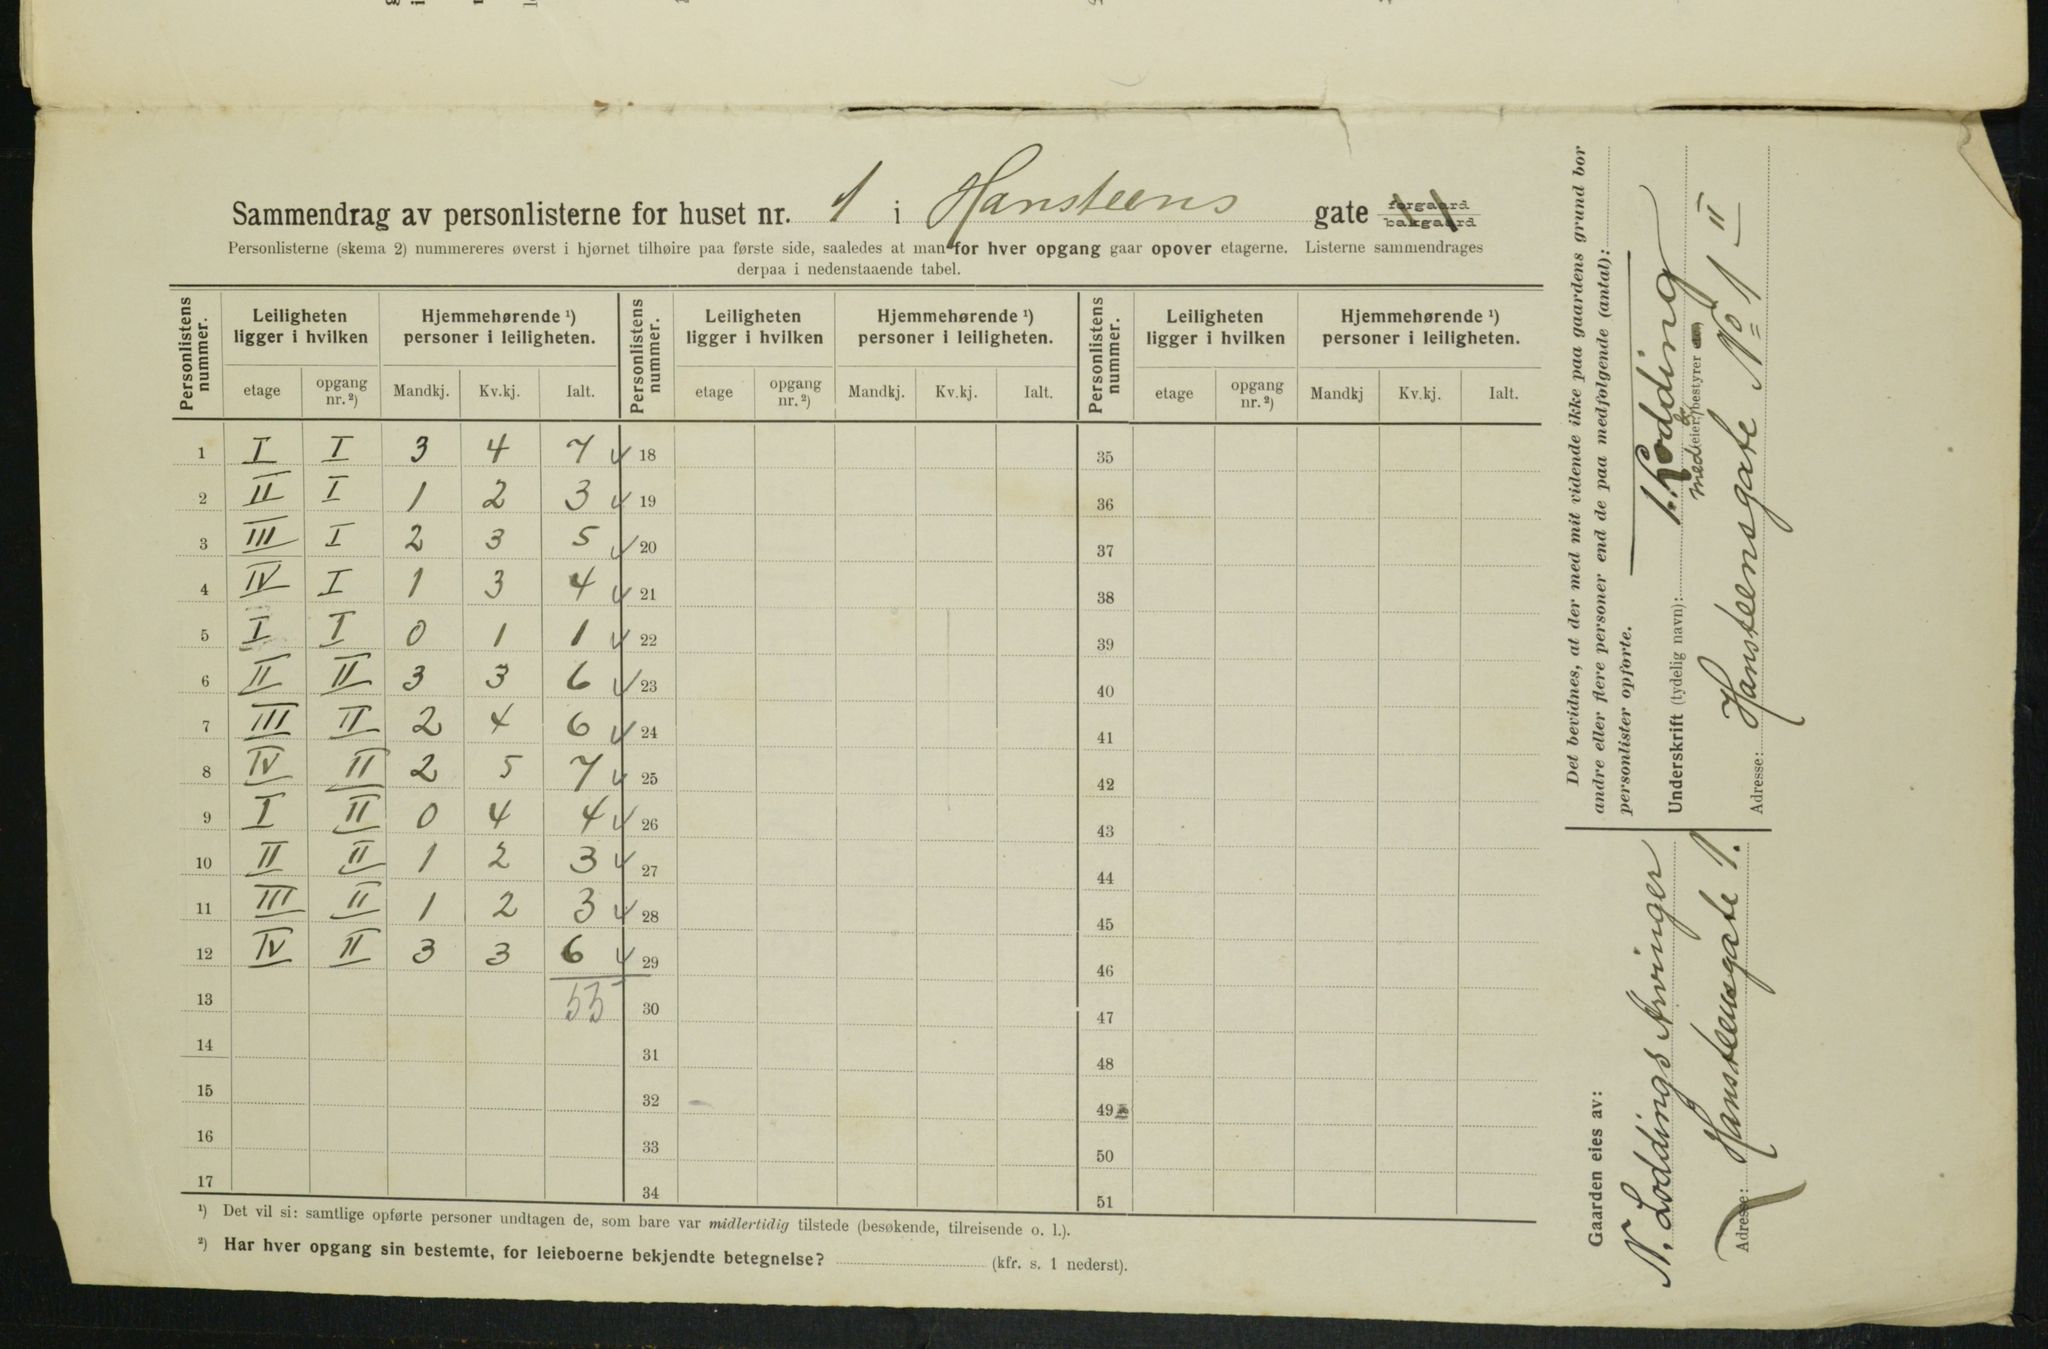 Sammendrag av personlisterne for huset nr. 1 i Hansteens gate forgaard bakgaard
Personlisterne (skema 2) nummereres øverst i hjørnet tilhøire paa første side, saaledes at man for hver opgang gaar opover etagerne. Listerne sammendrages
derpaa i nedenstaaende tabel.
Personlistens nummer. Leiligheten ligger i hvilken Hjemmehørende ¹) personer i leiligheten. Personlistens nummer. Leiligheten ligger i hvilken Hjemmehørende ¹) personer i leiligheten. Personlistens nummer. Leiligheten ligger i hvilken Hjemmehørende ¹) personer i leiligheten.
etage opgang nr. ²) Mandkj. Kv.kj. Ialt. etage opgang nr. ²) Mandkj. Kv.kj. Ialt. etage opgang nr. ²) Mandkj Kv.kj. Ialt.
1 I I 3 4 7 18 35
2 II I 1 2 3 19 36
3 III I 2 3 5 20 37
4 IV I 1 3 4 21 38
5 I I 0 1 1 22 39
6 II II 3 3 6 23 40
7 III II 2 4 6 24 41
8 IV II 2 5 7 25 42
9 I II 0 4 4 26 43
10 II II 1 2 3 27 44
11 III II 1 2 3 28 45
12 IV II 3 3 6 29 46
13 55 30 47
14 31 48
15 32 49
16 33 50
17 34 51
¹) Det vil si: samtlige opførte personer undtagen de, som bare var midlertidig tilstede (besøkende, tilreisende o. l.).
²) Har hver opgang sin bestemte, for leieboerne bekjendte betegnelse? (kfr. s. 1 nederst).
Det bevidnes, at der med mit vidende ikke paa gaardens grund bor
andre eller flere personer end de paa medfølgende (antal):
personlister opførte.
Underskrift (tydelig navn): Lodding
medeier, bestyrer
Adresse: Hansteensgate No 1 II
Gaarden eies av:
N. Loddings Arvinger
Adresse: Hansteensgate 1.